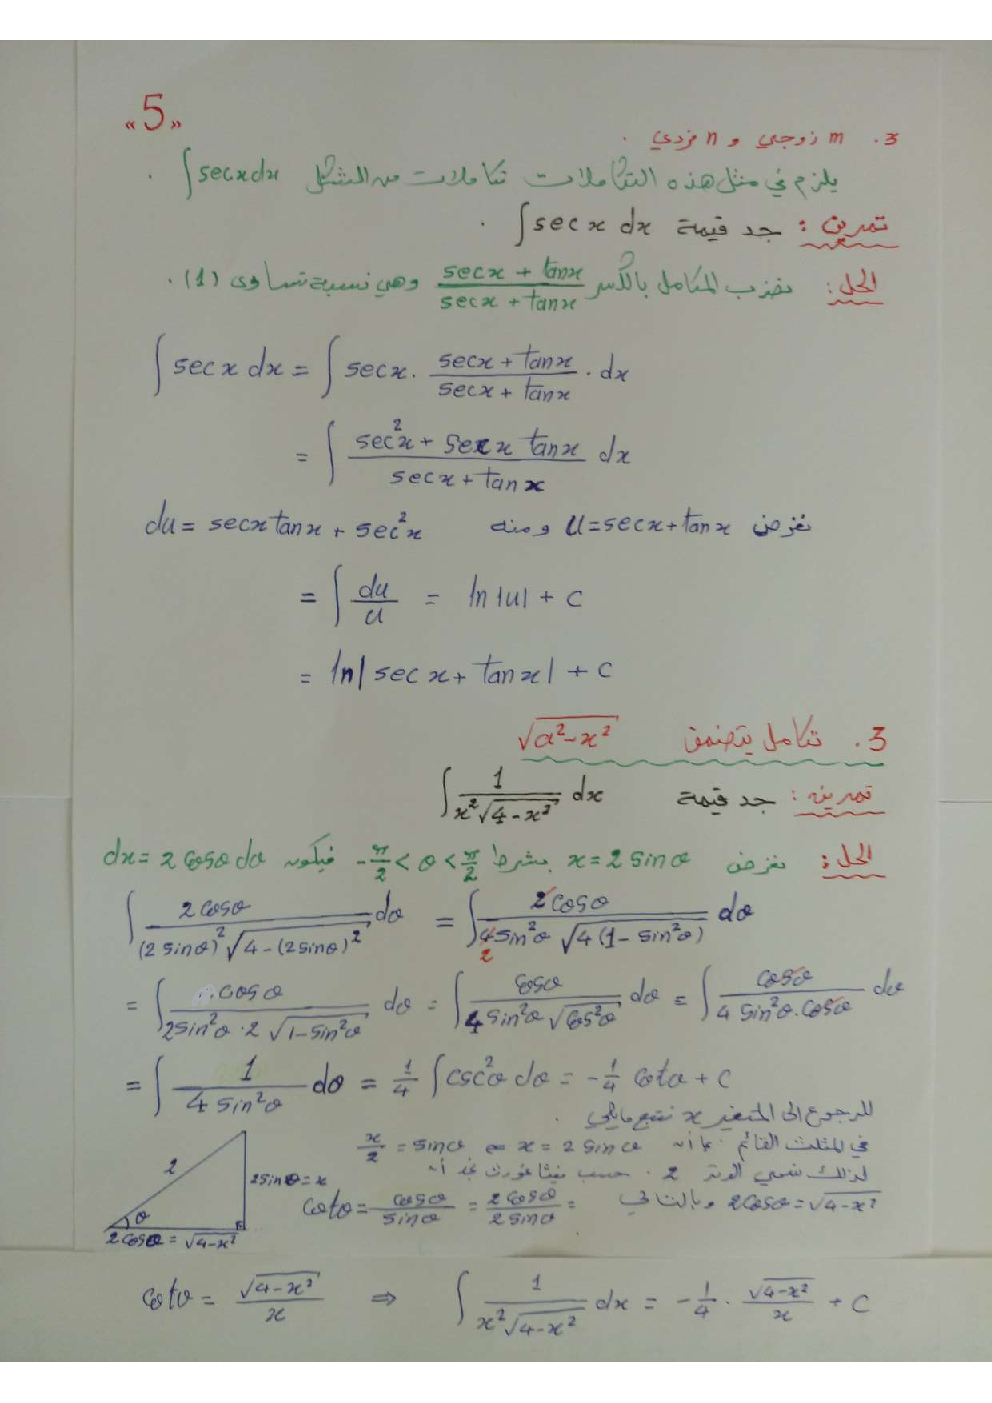 «5»
3. m زوجي و n فردي .
يلزم في مثل هذه التكاملات تكاملات من الشكل ∫ sec x dx .
تمرين : جد قيمة ∫ sec x dx .
الحل : نضرب المكامل بالكسر (sec x + tan x)/(sec x + tan x) وهي نسبة تساوي (1) .
∫ sec x dx = ∫ sec x . (sec x + tan x)/(sec x + tan x) . dx
= ∫ (sec²x + sec x tan x)/(sec x + tan x) dx
نفرض u = sec x + tan x ومنه du = sec x tan x + sec²x
= ∫ du/u = ln |u| + c
= ln | sec x + tan x | + c
3. تكامل يتضمن √(a²-x²)
تمرين : جد قيمة ∫ 1/(x²√(4-x²)) dx
الحل : نفرض x = 2 sin θ بشرط -π/2 < θ < π/2 فيكون dx = 2 cos θ dθ
∫ 2 cos θ/((2 sin θ)² √(4-(2 sin θ)²)) dθ = ∫ 2 cos θ/(4 sin²θ √(4(1- sin²θ))) dθ
2
= ∫ cos θ/(2 sin²θ · 2 √(1- sin²θ)) dθ = ∫ cos θ/(4 sin²θ √(cos²θ)) dθ = ∫ cos θ/(4 sin²θ . cos θ) dθ
= ∫ 1/(4 sin²θ) dθ = 1/4 ∫ csc²θ dθ = -1/4 cot θ + c
للرجوع الى المتغير x نتبع مايلي .
في المثلث القائم . بما أن x = 2 sin θ ⇔ x/2 = sin θ
لذلك نسمي الوتر 2 . حسب فيثاغورث نجد أن
2 cos θ = √(4-x²) وبالتالي cot θ = cos θ/sin θ = 2 cos θ/2 sin θ =
2
θ
2 sin θ = x
2 cos θ = √(4-x²)
cot θ = √(4-x²)/x ⇒ ∫ 1/(x²√(4-x²)) dx = -1/4 . √(4-x²)/x + c